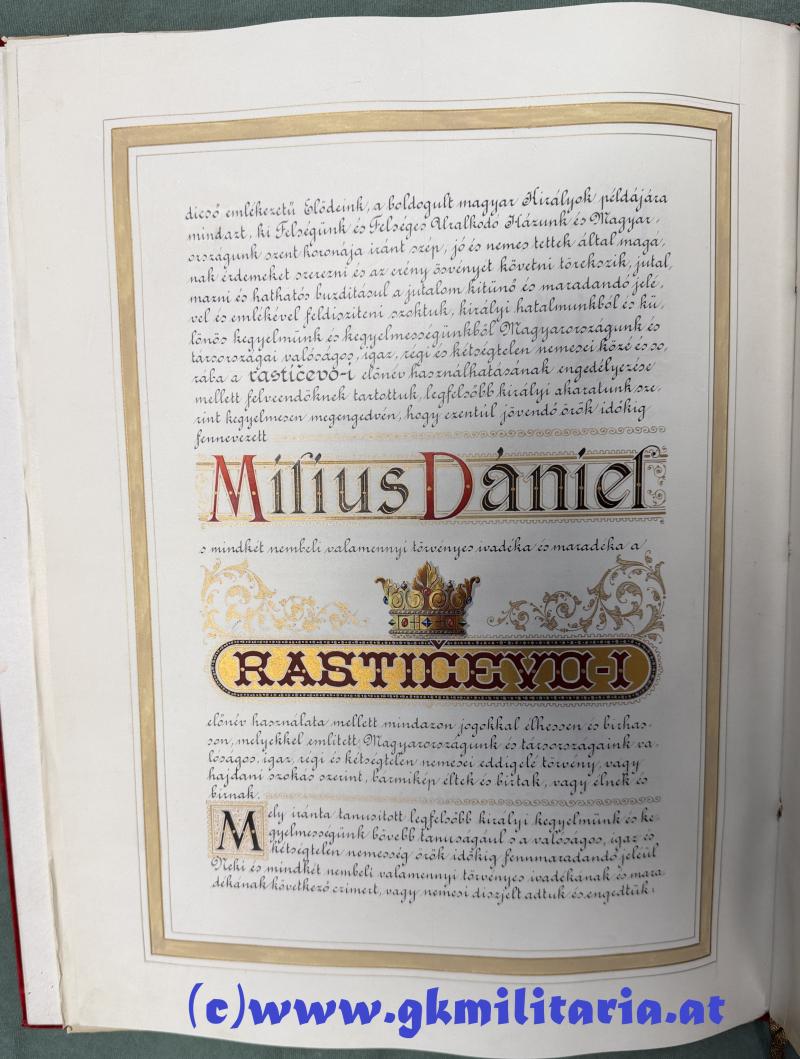 dicső emlékezetű Elődeink, a boldogult magyar Királyok példájára
mindazt, ki Felségünk és Felséges Uralkodó Házunk és Magyar-
országunk szent koronája iránt szép, jó és nemes tettek által magá,
nak érdemeket szerezni és az erény ösvényét követni törekszik, jutal,
mazni és hathatós buzditásul a jutalom kitünő és maradandó jelé,
vel és emlékével feldisziteni szoktuk, királyi hatalmunkból és kü,
lönös kegyelmünk és kegyelmességünkből Magyarországunk és
társországai valóságos, igaz, régi és kétségtelen nemesei közé és so,
rába a rastičevó-i előnév használhatásának engedélyezése
mellett felveendőknek tartottuk, legfelsőbb királyi akaratunk sze-
rint kegyelmesen megengedvén, hogy ezentúl jövendő örök időkig
fennevezett
Milius Dániel
s mindkét nembeli valamennyi törvényes ivadéka és maradéka a
RASTIČEVO-I
előnév használata mellett mindazon jogokkal élhessen és birhas-
son, melyekkel emlitett Magyarországunk és társországaink va-
lóságos, igaz, régi és kétségtelen nemesei eddigelé törvény, vagy
hajdani szokás szerint, bármikép éltek és birtak, vagy élnek és
birnak.
Mely iránta tanusitott legfelsőbb királyi kegyelmünk és ke-
gyelmességünk bővebb tanuságául s a valóságos, igaz és
kétségtelen nemesség örök időkig fennmaradandó jeléül
Neki és mindkét nembeli valamennyi törvényes ivadékának és mara
dékának következő czimert, vagy nemesi diszjelt adtuk és engedtük:
(c)www.gkmilitaria.at